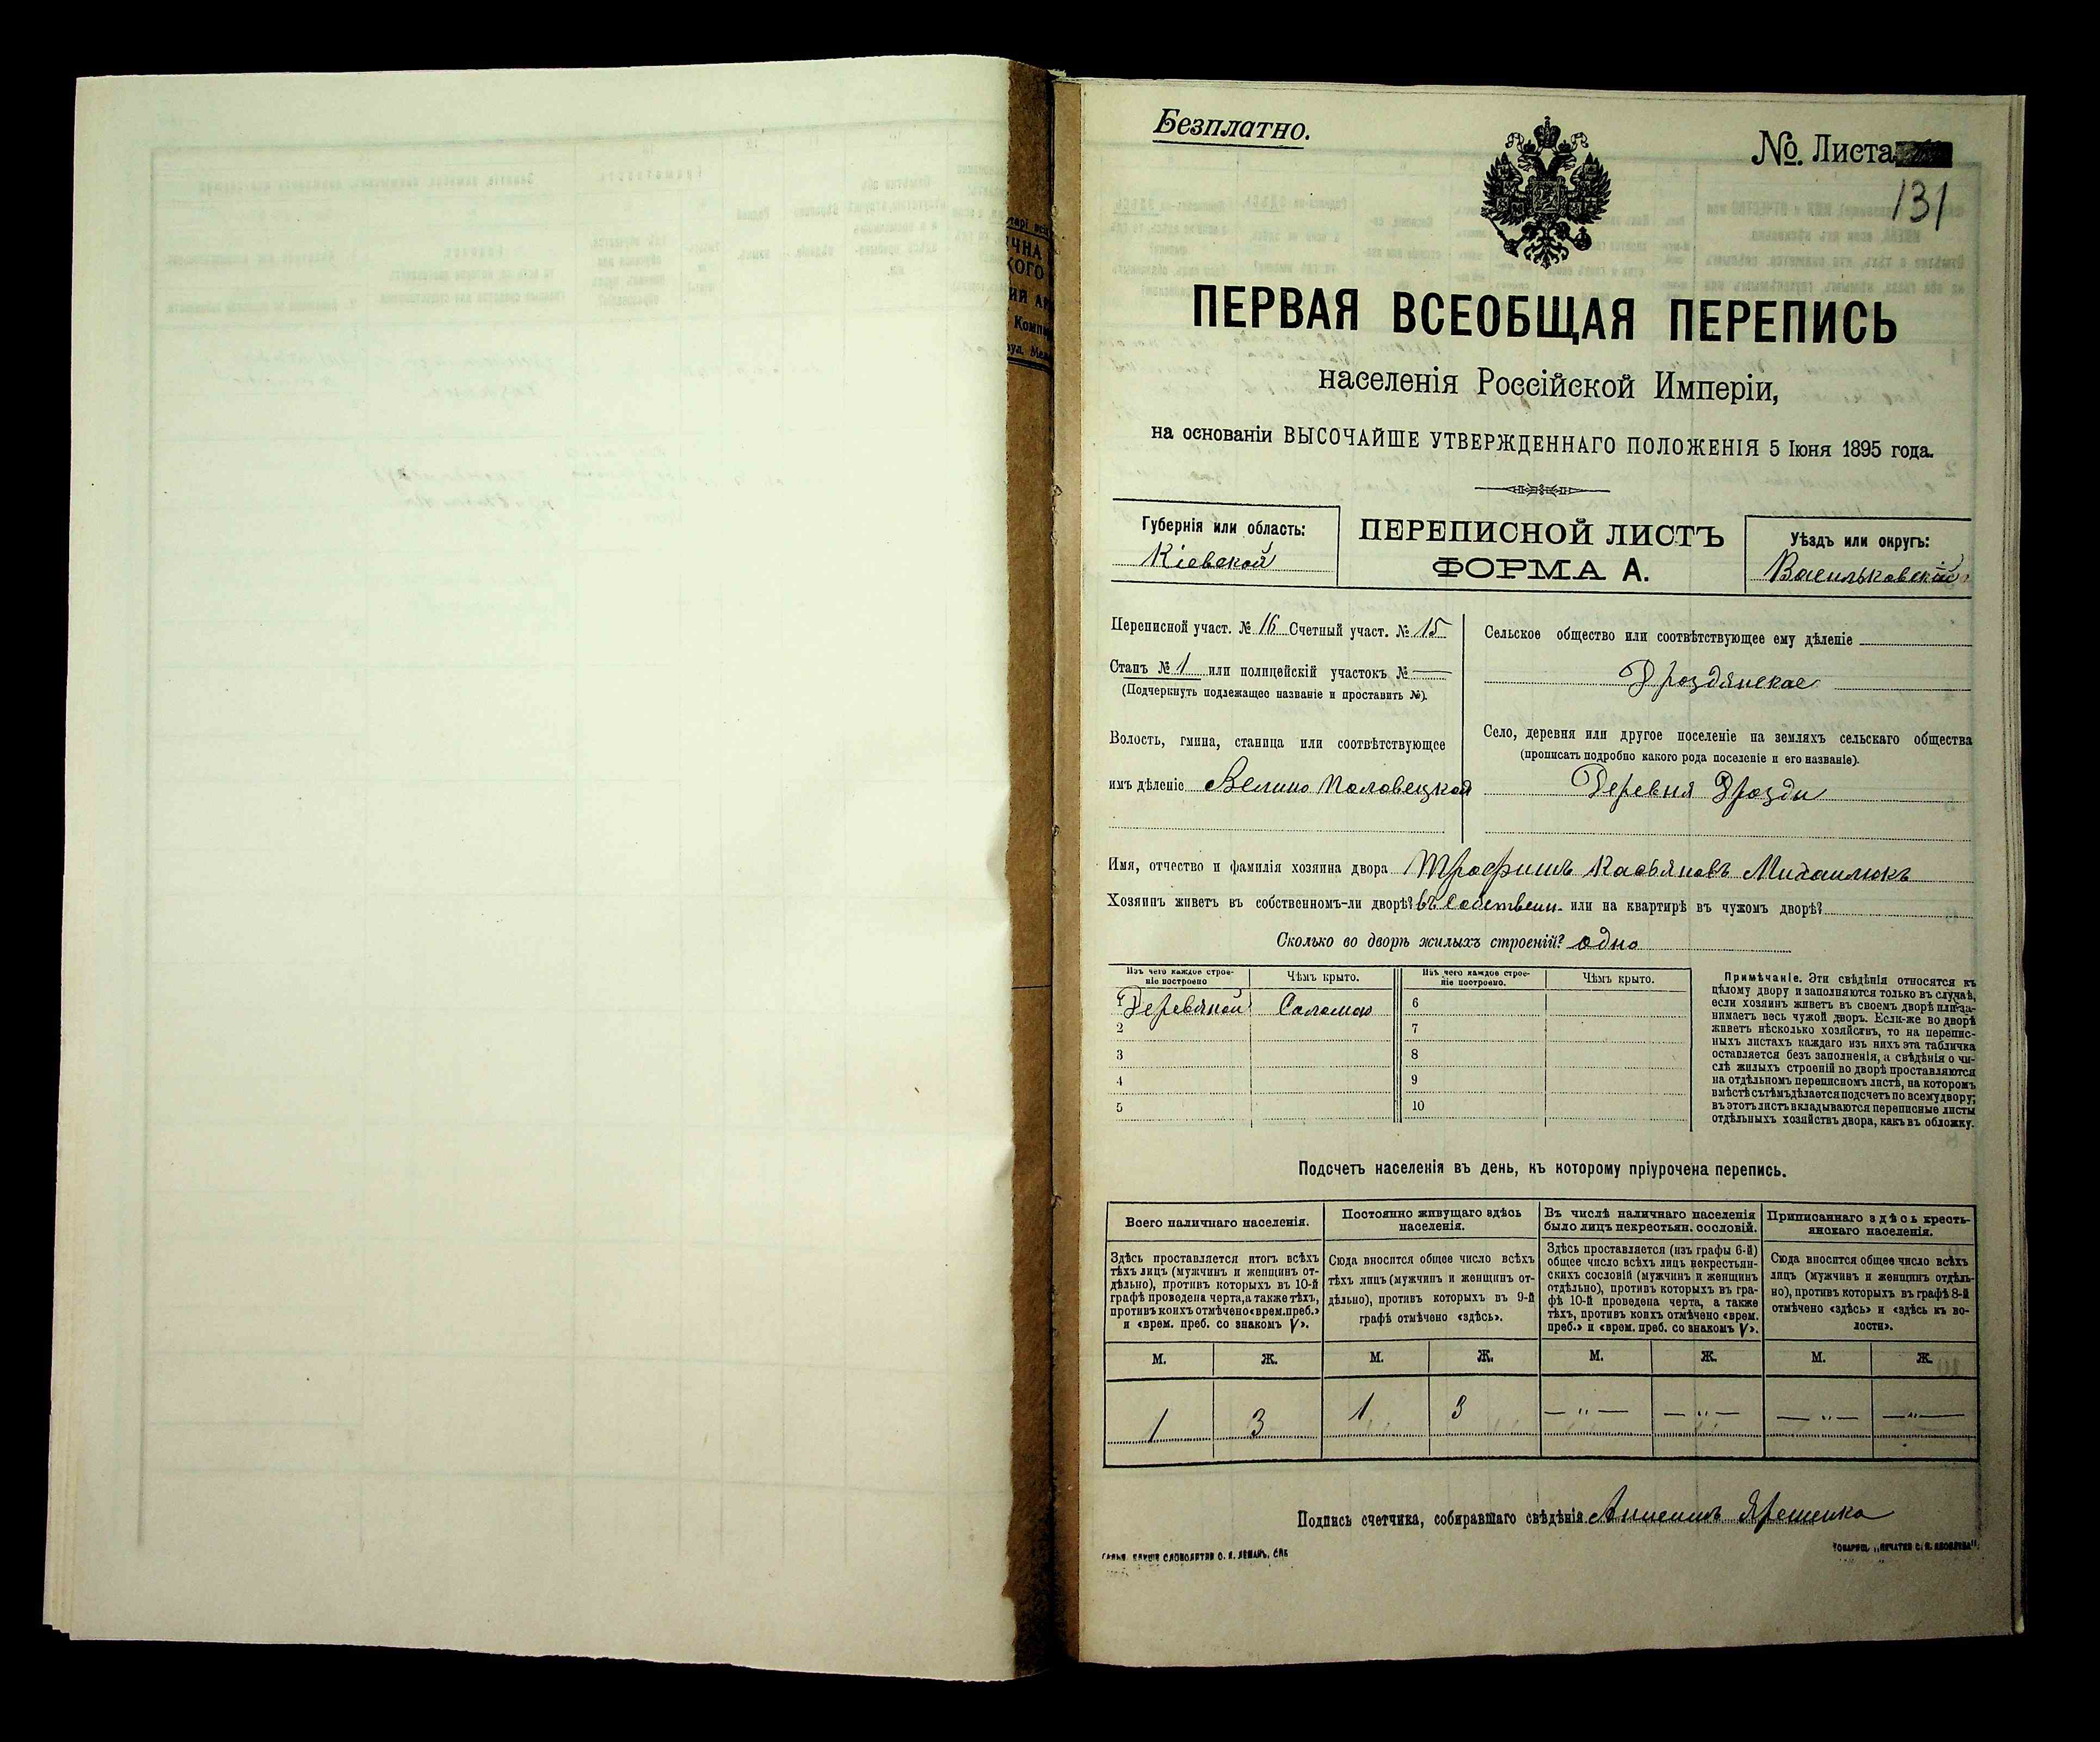 Безплатно.
№ Листа
131
ПЕРВАЯ ВСЕОБЩАЯ ПЕРЕПИСЬ
населенія Россійской Имперіи,
на основаніи ВЫСОЧАЙШЕ УТВЕРЖДЕННАГО ПОЛОЖЕНІЯ 5 Іюня 1895 года.
Губернія или область:
Кіевской
ПЕРЕПИСНОЙ ЛИСТЪ
ФОРМА А.
Уѣздъ или округъ:
Васильковскій
Переписной участ. № 16 Счетный участ. № 15
Станъ № 1 или полицейскій участокъ № —
(Подчеркнуть подлежащее названіе и проставить №).
Волость, гмина, станица или соотвѣтствующее
имъ дѣленіе Велико Половецкой
Сельское общество или соотвѣтствующее ему дѣленіе
Дроздянское
Село, деревня или другое поселеніе на земляхъ сельскаго общества
(прописать подробно какого рода поселеніе и его названіе).
Деревня Дрозди
Имя, отчество и фамилія хозяина двора Трофимъ Касьяновъ Михаилюкъ
Хозяинъ живетъ въ собственномъ-ли дворѣ? въ собственн. или на квартирѣ въ чужомъ дворѣ?
Сколько во дворѣ жилыхъ строеній? одно
Изъ чего каждое строе-
ніе построено
Чѣмъ крыто.
Изъ чего каждое строе-
ніе построено.
Чѣмъ крыто.
1 Деревяной Соломою 6
2 7
3 8
4 9
5 10
Примѣчаніе. Эти свѣдѣнія относятся къ
цѣлому двору и заполняются только въ случаѣ,
если хозяинъ живетъ въ своемъ дворѣ или за-
нимаетъ весь чужой дворъ. Если-же во дворѣ
живетъ нѣсколько хозяйствъ, то на перепис-
ныхъ листахъ каждаго изъ нихъ эта табличка
оставляется безъ заполненія, а свѣдѣнія о чи-
слѣ жилыхъ строеній во дворѣ проставляются
на отдѣльномъ переписномъ листѣ, на которомъ
вмѣстѣ съ тѣмъ дѣлается подсчетъ по всему двору;
въ этотъ листъ вкладываются переписные листы
отдѣльныхъ хозяйствъ двора, какъ въ обложку.
Подсчетъ населенія въ день, къ которому пріурочена перепись.
Всего наличнаго населенія.
Здѣсь проставляется итогъ всѣхъ
тѣхъ лицъ (мужчинъ и женщинъ от-
дѣльно), противъ которыхъ въ 10-й
графѣ проведена черта, а также тѣхъ,
противъ коихъ отмѣчено «врем. преб.»
и «врем. преб. со знакомъ V».
Постоянно живущаго здѣсь
населенія.
Сюда вносится общее число всѣхъ
тѣхъ лицъ (мужчинъ и женщинъ от-
дѣльно), противъ которыхъ въ 9-й
графѣ отмѣчено «здѣсь».
Въ числѣ наличнаго населенія
было лицъ некрестьян. сословій.
Здѣсь проставляется (изъ графы 6-й)
общее число всѣхъ лицъ некрестьян-
скихъ сословій (мужчинъ и женщинъ
отдѣльно), противъ которыхъ въ гра-
фѣ 10-й проведена черта, а также
тѣхъ, противъ коихъ отмѣчено «врем.
преб.» и «врем. преб. со знакомъ V».
Приписаннаго здѣсь кресть-
янскаго населенія.
Сюда вносится общее число всѣхъ
лицъ (мужчинъ и женщинъ отдѣль-
но), противъ которыхъ въ графѣ 8-й
отмѣчено «здѣсь» и «здѣсь къ во-
лости».
М. Ж. М. Ж. М. Ж. М. Ж.
1 3 1 3 — " — — " — — " — — " —
Подпись счетчика, собиравшаго свѣдѣнія